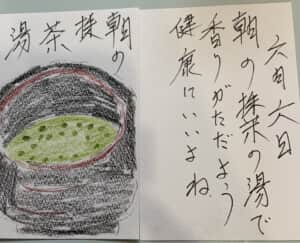 六月六日
朝の抹の湯で
香りがただよう
健康にいいよね
朝の抹茶湯